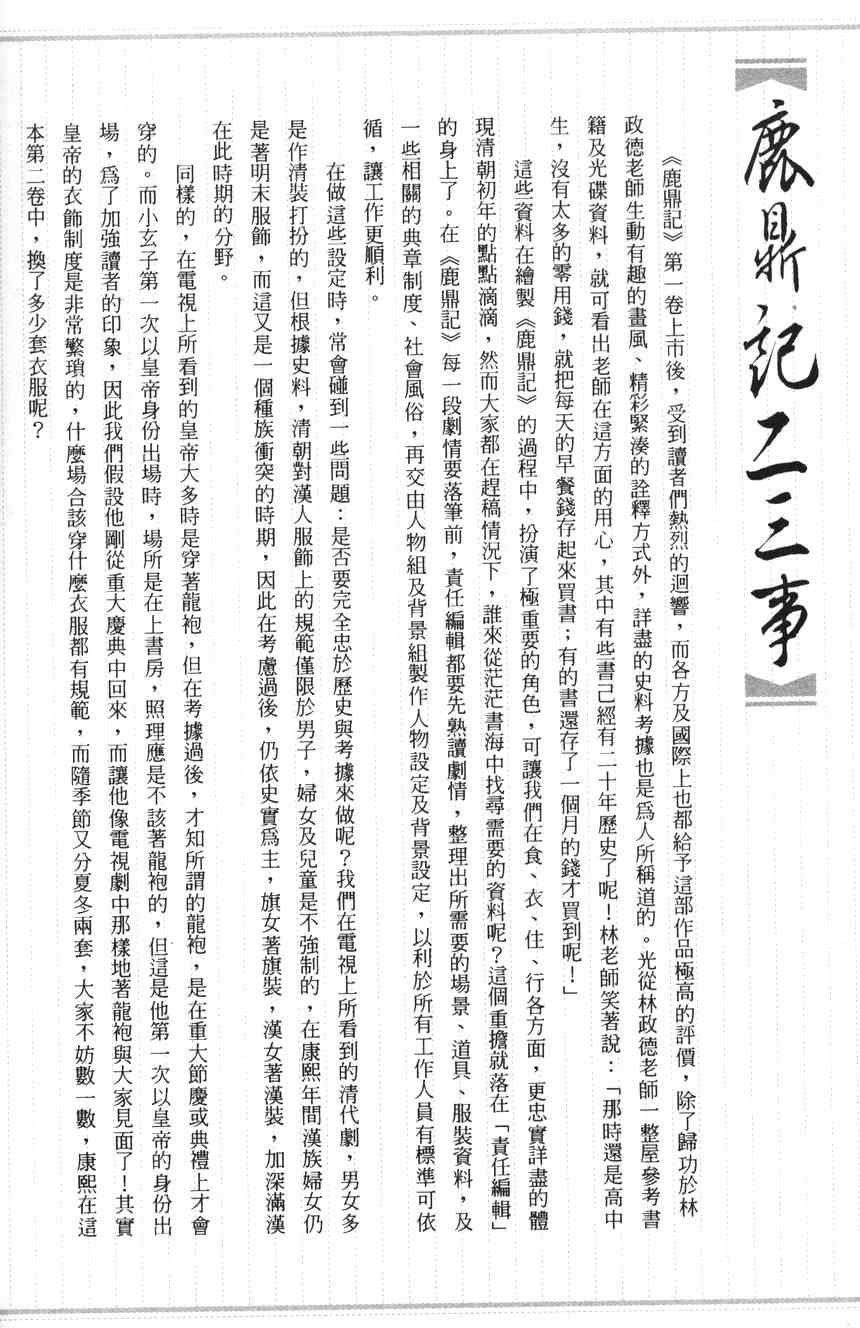 鹿鼎記二三事
《鹿鼎記》第一卷上市後，受到讀者們熱烈的迴響，而各方及國際上也都給予這部作品極高的評價，除了歸功於林
政德老師生動有趣的畫風、精彩緊湊的詮釋方式外，詳盡的史料考據也是爲人所稱道的。光從林政德老師一整屋參考書
籍及光碟資料，就可看出老師在這方面的用心，其中有些書已經有二十年歷史了呢！林老師笑著說：「那時還是高中
生，沒有太多的零用錢，就把每天的早餐錢存起來買書；有的書還存了一個月的錢才買到呢！」
這些資料在繪製《鹿鼎記》的過程中，扮演了極重要的角色，可讓我們在食、衣、住、行各方面，更忠實詳盡的體
現清朝初年的點點滴滴，然而大家都在趕稿情況下，誰來從茫茫書海中找尋需要的資料呢？這個重擔就落在「責任編輯」
的身上了。在《鹿鼎記》每一段劇情要落筆前，責任編輯都要先熟讀劇情，整理出所需要的場景、道具、服裝資料，及
一些相關的典章制度、社會風俗，再交由人物組及背景組製作人物設定及背景設定，以利於所有工作人員有標準可依
循，讓工作更順利。
在做這些設定時，常會碰到一些問題：是否要完全忠於歷史與考據來做呢？我們在電視上所看到的清代劇，男女多
是作清裝打扮的，但根據史料，清朝對漢人服飾上的規範僅限於男子，婦女及兒童是不強制的，在康熙年間漢族婦女仍
是著明末服飾，而這又是一個種族衝突的時期，因此在考慮過後，仍依史實爲主，旗女著旗裝，漢女著漢裝，加深滿漢
在此時期的分野。
同樣的，在電視上所看到的皇帝大多時是穿著龍袍，但在考據過後，才知所謂的龍袍，是在重大節慶或典禮上才會
穿的。而小玄子第一次以皇帝身份出場時，場所是在上書房，照理應是不該著龍袍的，但這是他第一次以皇帝的身份出
場，爲了加強讀者的印象，因此我們假設他剛從重大慶典中回來，而讓他像電視劇中那樣地著龍袍與大家見面了！其實
皇帝的衣飾制度是非常繁瑣的，什麼場合該穿什麼衣服都有規範，而隨季節又分夏冬兩套，大家不妨數一數，康熙在這
本第二卷中，換了多少套衣服呢？